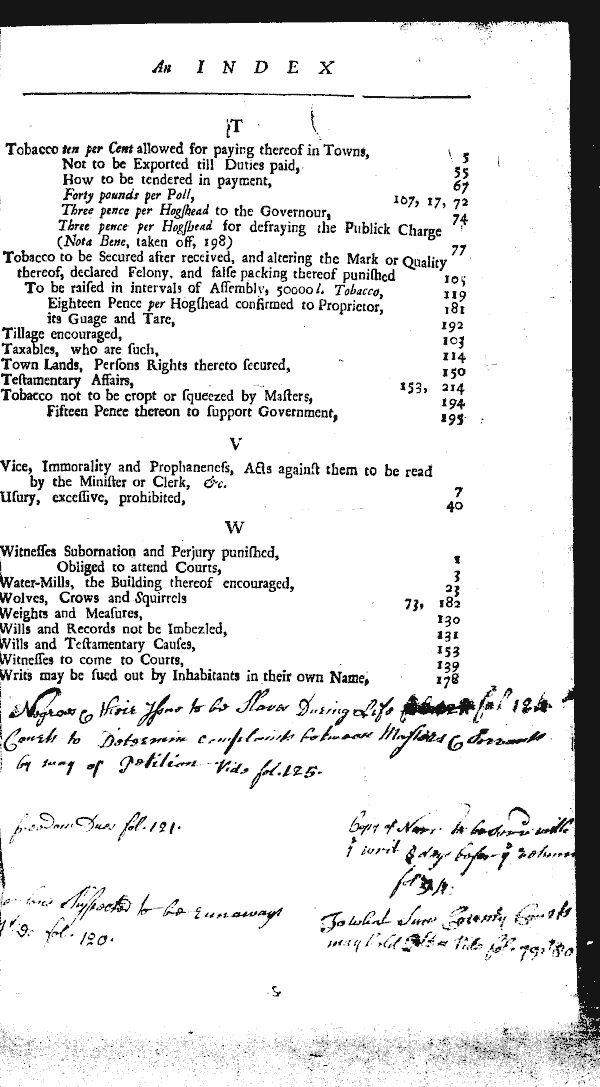 An INDEX
T
Tobacco ten per Cent allowed for paying thereof in Towns, 5
Not to be Exported till Duties paid, 55
How to be tendered in payment, 67
Forty pounds per Poll, 107, 17, 72
Three pence per Hogſhead to the Governour, 74
Three pence per Hogſhead for defraying the Publick Charge
(Nota Bene, taken off, 198) 77
Tobacco to be Secured after received, and altering the Mark or Quality
thereof, declared Felony, and falſe packing thereof puniſhed 105
To be raiſed in intervals of Aſſembly, 50000 l. Tobacco, 119
Eighteen Pence per Hogſhead confirmed to Proprietor, 181
its Guage and Tare, 192
Tillage encouraged, 103
Taxables, who are ſuch, 114
Town Lands, Perſons Rights thereto ſecured, 150
Teſtamentary Affairs, 153, 214
Tobacco not to be cropt or ſqueezed by Maſters, 194
Fifteen Pence thereon to ſupport Government, 195
V
Vice, Immorality and Prophaneneſs, Acts againſt them to be read
by the Miniſter or Clerk, &c. 7
Uſury, exceſſive, prohibited, 40
W
Witneſſes Subornation and Perjury puniſhed, 1
Obliged to attend Courts, 3
Water-Mills, the Building thereof encouraged, 23
Wolves, Crows and Squirrels 73, 182
Weights and Meaſures, 130
Wills and Records not be Imbezled, 131
Wills and Teſtamentary Cauſes, 153
Witneſſes to come to Courts, 139
Writs may be ſued out by Inhabitants in their own Name, 178
Negroes & their Issue to be Slaves During Life fol 124
Courts to Determin complaints between Masters & Servants
by way of Petition Vide fol. 125.
freedom Dues fol. 121.
Copy of Narr to be with
writ days before
fol
Suspected to be runaways
fol. 120.
To what Sum County Courts
may hold Vide fol. 79, 80